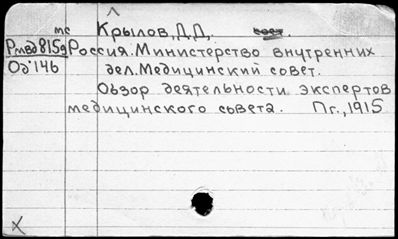 мс Крылов, Д.Д.
Рмвд815д Россия. Министерство внутренних
Од'146 дел. Медицинский совет.
Обзор деятельности экспертов
медицинского совета. Пг., 1915
X